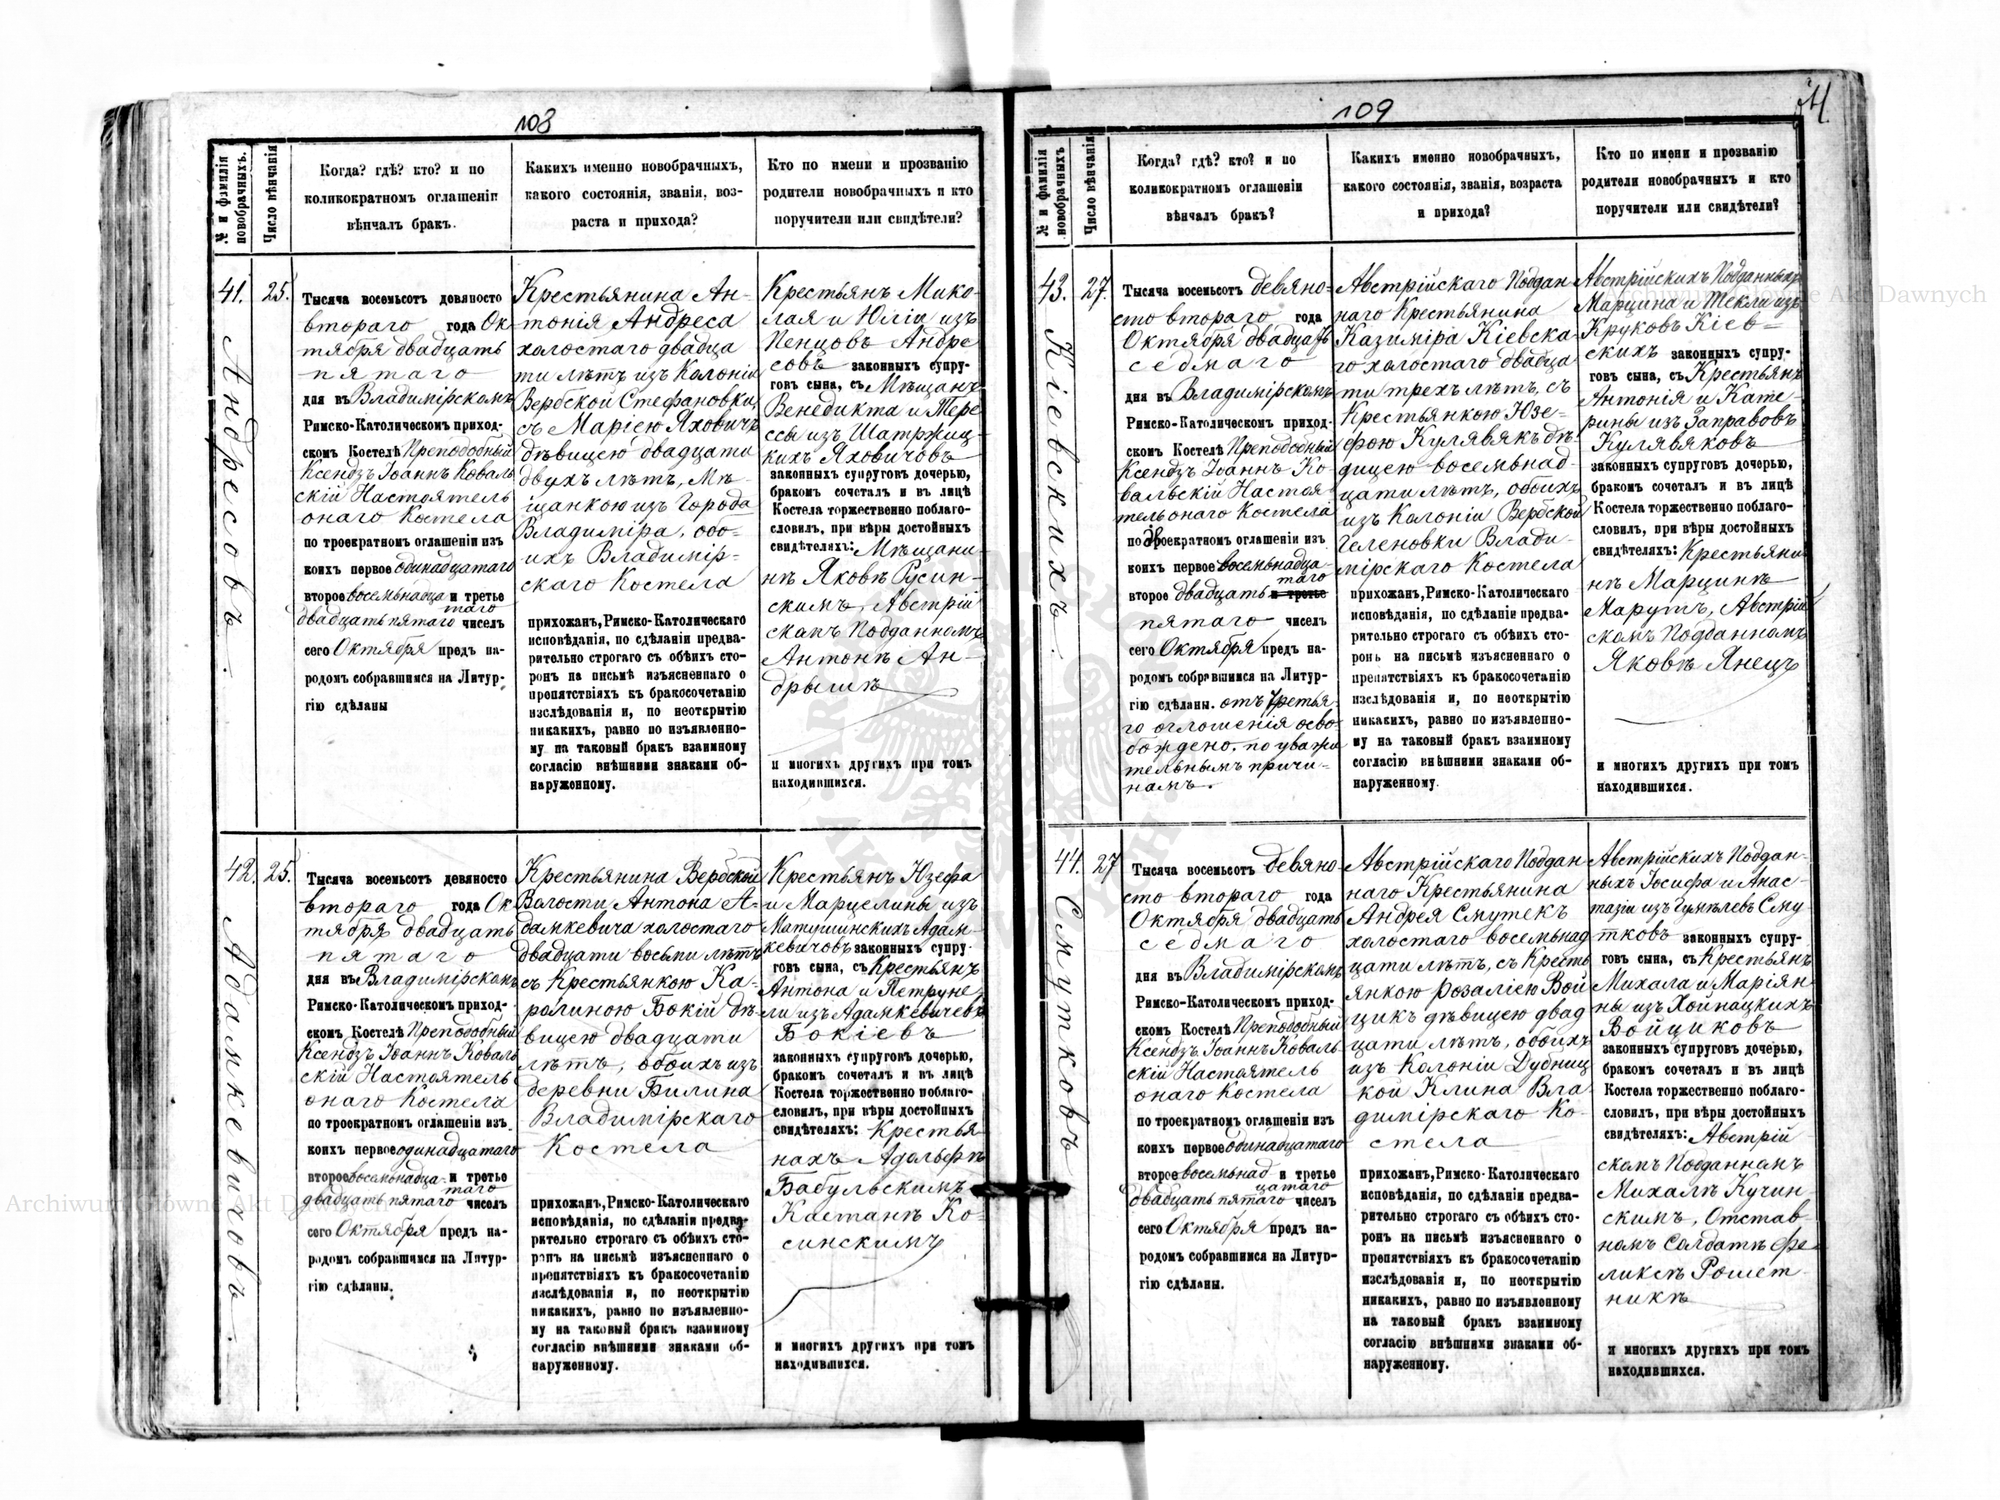 108
№ и фамилія новобрачныхъ.
Число вѣнчанія
Когда? гдѣ? кто? и по
коликократномъ оглашеніи
вѣнчалъ бракъ.
Какихъ именно новобрачныхъ,
какого состоянія, званія, воз-
раста и прихода?
Кто по имени и прозванію
родители новобрачныхъ и кто
поручители или свидѣтели?
41.
Андресовъ.
25.
Тысяча восемьсотъ девяносто
втораго года Ок-
тября двадцать
пятаго
дня въ Владимірскомъ
Римско-Католическомъ приход-
скомъ Костелѣ Преподобный
Ксендзъ Іоаннъ Коваль
скій Настоятель
онаго Костела
по троекратномъ оглашеніи изъ
коихъ первое одинадцатаго
второе восемьнадца и третье
таго
двадцать пятаго чиселъ
сего Октября предъ на-
родомъ собравшимся на Литур-
гію сдѣланы
Крестьянина Ан-
тонія Андреса
холостаго двадца
ти лѣтъ изъ Колоніи
Вербской Стефановки,
съ Маріею Яховичъ
дѣвицею двадцати
двухъ лѣтъ, Мѣ-
щанкою изъ Города
Владиміра, обо-
ихъ Владимір-
скаго Костела
прихожанъ, Римско-Католическаго
исповѣданія, по сдѣланіи предва-
рительно строгаго съ обѣихъ сто-
ронъ на письмѣ изъясненнаго о
препятствіяхъ къ бракосочетанію
изслѣдованія и, по неоткрытію
никакихъ, равно по изъявленно-
му на таковый бракъ взаимному
согласію внѣшними знаками об-
наруженному.
Крестьянъ Мико-
лая и Юліи изъ
Пенцовъ Андре
совъ законныхъ супру-
говъ сына, съ Мѣщанъ
Венедикта и Тере
ссы изъ Шатржиц-
кихъ Яховичовъ
законныхъ супруговъ дочерью,
бракомъ сочеталъ и въ лицѣ
Костела торжественно поблаго-
словилъ, при вѣры достойныхъ
свидѣтеляхъ: Мѣщани-
нѣ Яковѣ Русин-
скимъ, Австрій
скомъ Подданномъ
Антонѣ Ан-
дрышѣ
и многихъ другихъ при томъ
находившихся.
42.
Адамкевичовъ.
25.
Тысяча восемьсотъ девяносто
втораго года Ок
тября двадцать
пятаго
дня въ Владимірскомъ
Римско-Католическомъ приход-
скомъ Костелѣ Преподобный
Ксендзъ Іоаннъ Коваль
скій Настоятель
онаго Костела
по троекратномъ оглашеніи изъ
коихъ первое одинадцатаго
второе восемьнадца- и третье
таго
двадцать пятаго чиселъ
сего Октября предъ на-
родомъ собравшимся на Литур-
гію сдѣланы.
Крестьянина Вербской
Волости Антона А-
дамкевича холостаго
двадцати восьми лѣтъ
съ Крестьянкою Ка-
ролиною Бокій дѣ-
вицею двадцати
лѣтъ, обоихъ изъ
деревни Билина
Владимірскаго
Костела
прихожанъ, Римско-Католическаго
исповѣданія, по сдѣланіи предва-
рительно строгаго съ обѣихъ сто-
ронъ на письмѣ изъясненнаго о
препятствіяхъ къ бракосочетанію
изслѣдованія и, по неоткрытію
никакихъ, равно по изъявленно-
му на таковый бракъ взаимному
согласію внѣшними знаками об-
наруженному.
Крестьянъ Юзефа
и Марцелины изъ
Матушинскихъ Адам-
кевичовъ законныхъ супру-
говъ сына, съ Крестьянъ
Антона и Петруне
ли изъ Адамкевичевъ
Бокіевъ
законныхъ супруговъ дочерью,
бракомъ сочеталъ и въ лицѣ
Костела торжественно поблаго-
словилъ, при вѣры достойныхъ
свидѣтеляхъ: Крестья
нахъ Адольфѣ
Бабульскимъ
Кастанѣ Ко-
синскимъ
и многихъ другихъ при томъ
находившихся.
109
№ и фамилія новобрачныхъ
Число вѣнчанія
Когда? гдѣ? кто? и по
коликократномъ оглашеніи
вѣнчалъ бракъ?
Какихъ именно новобрачныхъ,
какого состоянія, званія, возраста
и прихода?
Кто по имени и прозванію
родители новобрачныхъ и кто
поручители или свидѣтели?
43.
Кіевскихъ.
27.
Тысяча восемьсотъ девяно-
сто втораго года
Октября двадцать
седмаго
дня въ Владимірскомъ
Римско-Католическомъ приход-
скомъ Костелѣ Преподобный
Ксендзъ Іоаннъ Ко-
вальскій Настоя
тель онаго Костела
по двоекратномъ оглашеніи изъ
коихъ первое восемьнадца-
таго
второе двадцать и третье
пятаго чиселъ
сего Октября предъ на-
родомъ собравшимся на Литур-
гію сдѣланы. отъ третья-
го оглошенія осво-
бождено, по уважи
тельнымъ причи-
намъ.
Австрійскаго Поддан
наго Крестьянина
Казиміра Кіевска
го холостаго двадца
ти трехъ лѣтъ, съ
Крестьянкою Юзе-
фою Кулявякъ дѣ-
вицею восемьнад-
цати лѣтъ, обоихъ
изъ Колоніи Вербской
Геленовки Влади-
мірскаго Костела
прихожанъ, Римско-Католическаго
исповѣданія, по сдѣланіи предва-
рительно строгаго съ обѣихъ сто-
ронъ на письмѣ изъясненнаго о
препятствіяхъ къ бракосочетанію
изслѣдованія и, по неоткрытію
никакихъ, равно по изъявленно-
му на таковый бракъ взаимному
согласію внѣшними знаками об-
наруженному.
Австрійскихъ Подданныхъ
Марцина и Текли изъ
Круковъ Кіев-
скихъ законныхъ супру-
говъ сына, съ Крестьянъ
Антонія и Кате-
рины изъ Заправовъ
Кулявяковъ
законныхъ супруговъ дочерью,
бракомъ сочеталъ и въ лицѣ
Костела торжественно поблаго-
словилъ, при вѣры достойныхъ
свидѣтеляхъ: Крестьяни
нѣ Марцинѣ
Марутъ, Австрій
скомъ Подданномъ
Яковѣ Янецъ
и многихъ другихъ при томъ
находившихся.
44.
Смутковъ
27
Тысяча восемьсотъ девяно-
сто втораго года
Октября двадцать
седмаго
дня въ Владимірскомъ
Римско-Католическомъ приход-
скомъ Костелѣ Преподобный
Ксендзъ Іоаннъ Коваль-
скій Настоятель
онаго Костела
по троекратномъ оглашеніи изъ
коихъ первое одинадцатаго
второе восемьнад и третье
цатаго
двадцать пятаго чиселъ
сего Октября предъ на-
родомъ собравшимся на Литур-
гію сдѣланы.
Австрійскаго Поддан-
наго Крестьянина
Андрея Смутекъ
холостаго восемьнад
цати лѣтъ, съ Кресть
янкою Розаліею Вой
цикъ дѣвицею двад
цати лѣтъ, обоихъ
изъ Колоніи Дубниц
кой Клина Вла-
димірскаго Ко-
стела
прихожанъ, Римско-Католическаго
исповѣданія, по сдѣланіи предва-
рительно строгаго съ обѣихъ сто-
ронъ на письмѣ изъясненнаго о
препятствіяхъ къ бракосочетанію
изслѣдованія и, по неоткрытію
никакихъ, равно по изъявленному
на таковый бракъ взаимному
согласію внѣшними знаками об-
наруженному.
Австрійскихъ Поддан-
ныхъ Іосифа и Анас-
тазіи изъ Сму
тковъ законныхъ супру-
говъ сына, съ Крестьянъ
Михала и Маріян-
ны изъ Хойнацкихъ
Войциковъ
законныхъ супруговъ дочерью,
бракомъ сочеталъ и въ лицѣ
Костела торжественно поблаго-
словилъ, при вѣры достойныхъ
свидѣтеляхъ: Австрій-
скомъ Подданномъ
Михалѣ Кучин-
скимъ, Отстав-
номъ Солдатѣ Фе-
ликсѣ Рошет-
никѣ
и многихъ другихъ при томъ
находившихся.
Archiwum Główne Akt Dawnych
Archiwum Główne Akt Dawnych